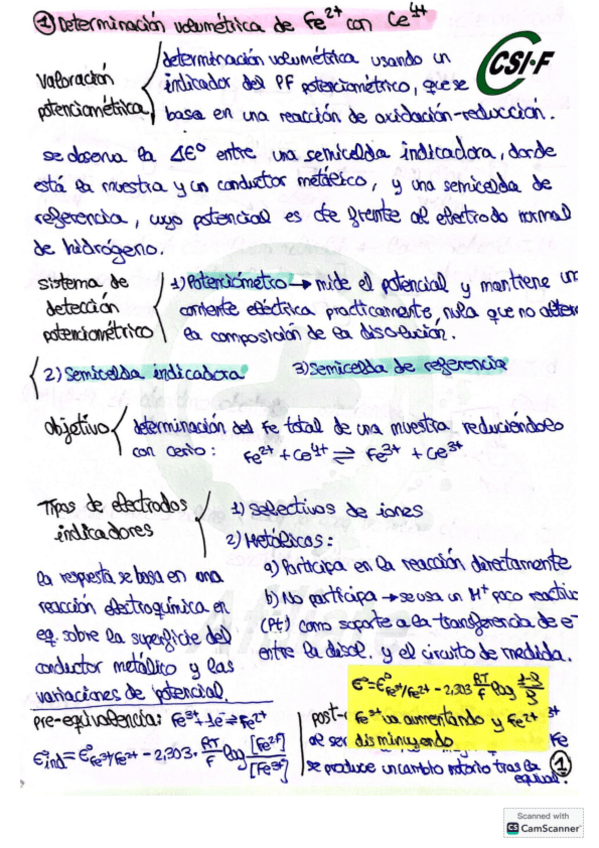 ① Determinación volumétrica de Fe²⁺ con Ce⁴⁺
CSI·F
Valoración potenciométrica
determinación volumétrica usando un
indicador del PF potenciométrico, que se
basa en una reacción de oxidación-reducción.
se observa la ΔEº entre una semicelda indicadora, donde
está la muestra y un conductor metálico, y una semicelda de
referencia, cuyo potencial es cte frente al electrodo normal
de hidrógeno.
sistema de detección potenciométrico
1) Potenciómetro → mide el potencial y mantiene un
corriente eléctrica practicamente nula que no alter
la composición de la disolución.
2) Semicelda indicadora 3) Semicelda de referencia
Objetivo
determinación del Fe total de una muestra reduciéndolo
con cerio: Fe²⁺ + Ce⁴⁺ ⇌ Fe³⁺ + Ce³⁺
Tipos de electrodos indicadores
1) Selectivos de iones
2) Metálicos:
a) Participa en la reacción directamente
b) No participa → se usa un M⁺ poco reactivo
(Pt) como soporte a la transferencia de e⁻
entre la disol. y el circuito de medida.
la respuesta se basa en una
reacción electroquímica en
eq. sobre la superficie del
conductor metálico y las
variaciones de potencial.
pre-equivalencia: Fe³⁺ + 1e⁻ ⇌ Fe²⁺
Eºind = EºFe³⁺/Fe²⁺ - 2,303 · RT/F log [Fe²⁺]/[Fe³⁺]
Fe³⁺ va aumentando y Fe²⁺
disminuyendo
al ser
Fe
se produce un cambio notorio tras la
equival.
①
Scanned with
CS CamScanner